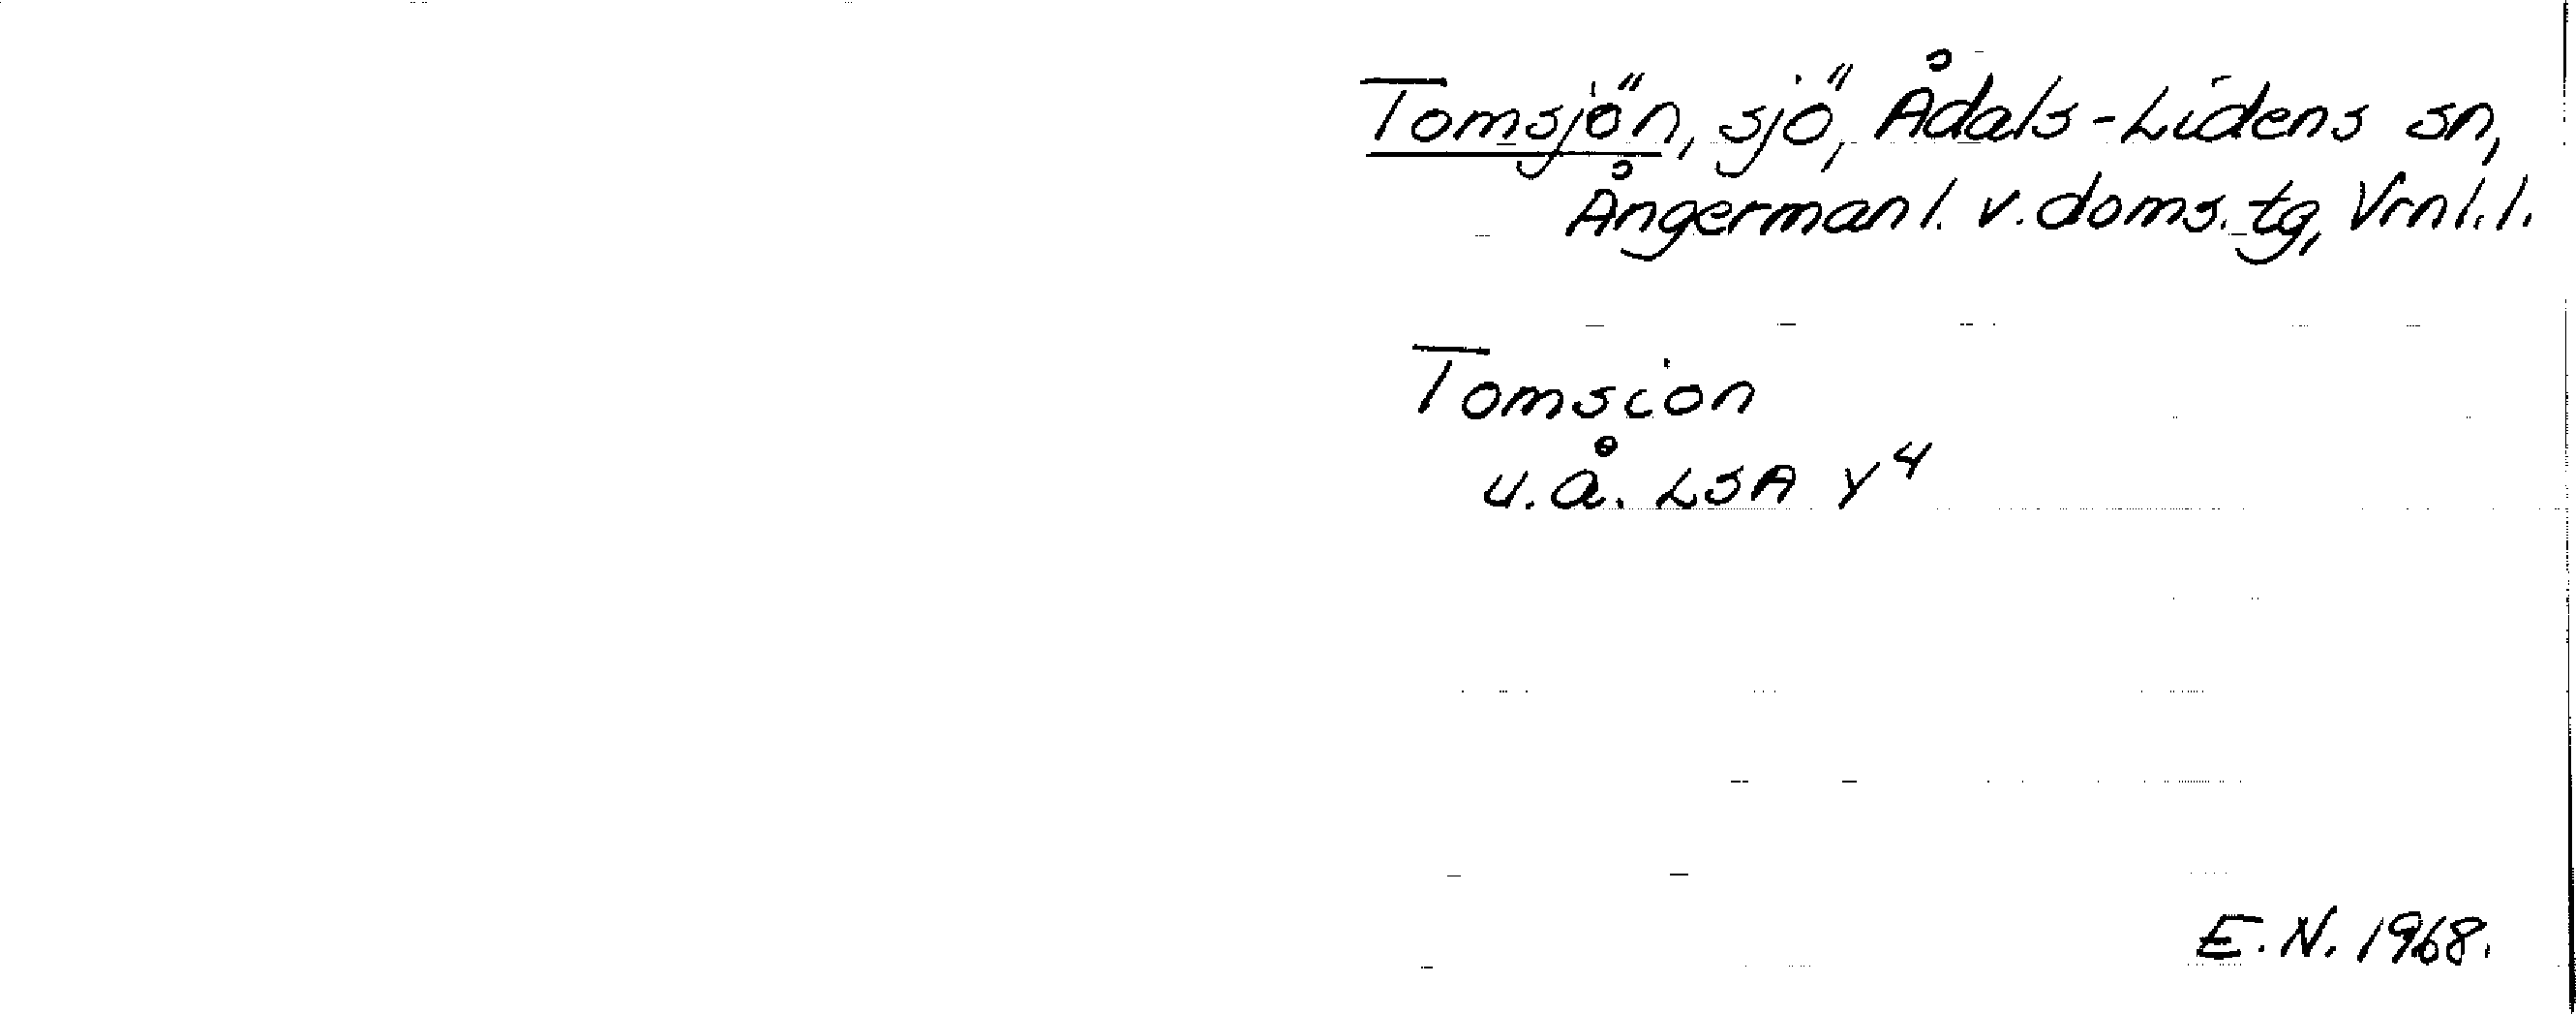 Tomsjön, sjö, Ådals-Lidens sn,
Ångermanl. v. doms. tg, Vrnl.l.
Tomsion
u.å. LSA Y⁴
E.N. 1968.